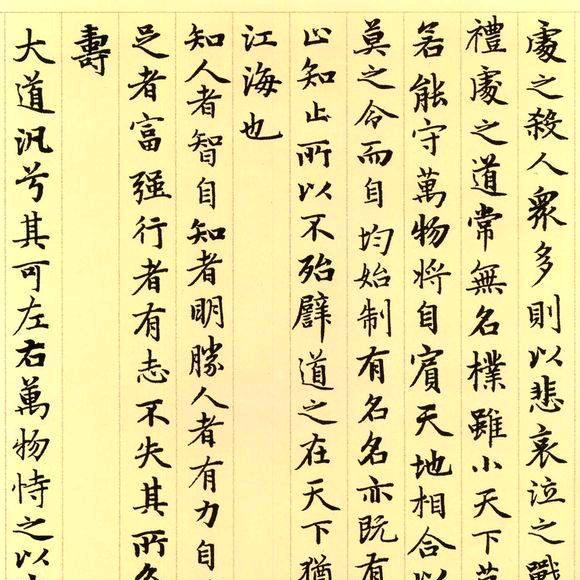 處之殺人衆多則以悲哀泣之戰
禮處之道常無名樸雖小天下莫
若能守萬物將自賓天地相合以
莫之令而自均始制有名名亦既有
止知止所以不殆譬道之在天下猶
江海也
知人者智自知者明勝人者有力自
足者富强行者有志不失其所久
壽
大道汎兮其可左右萬物恃之以